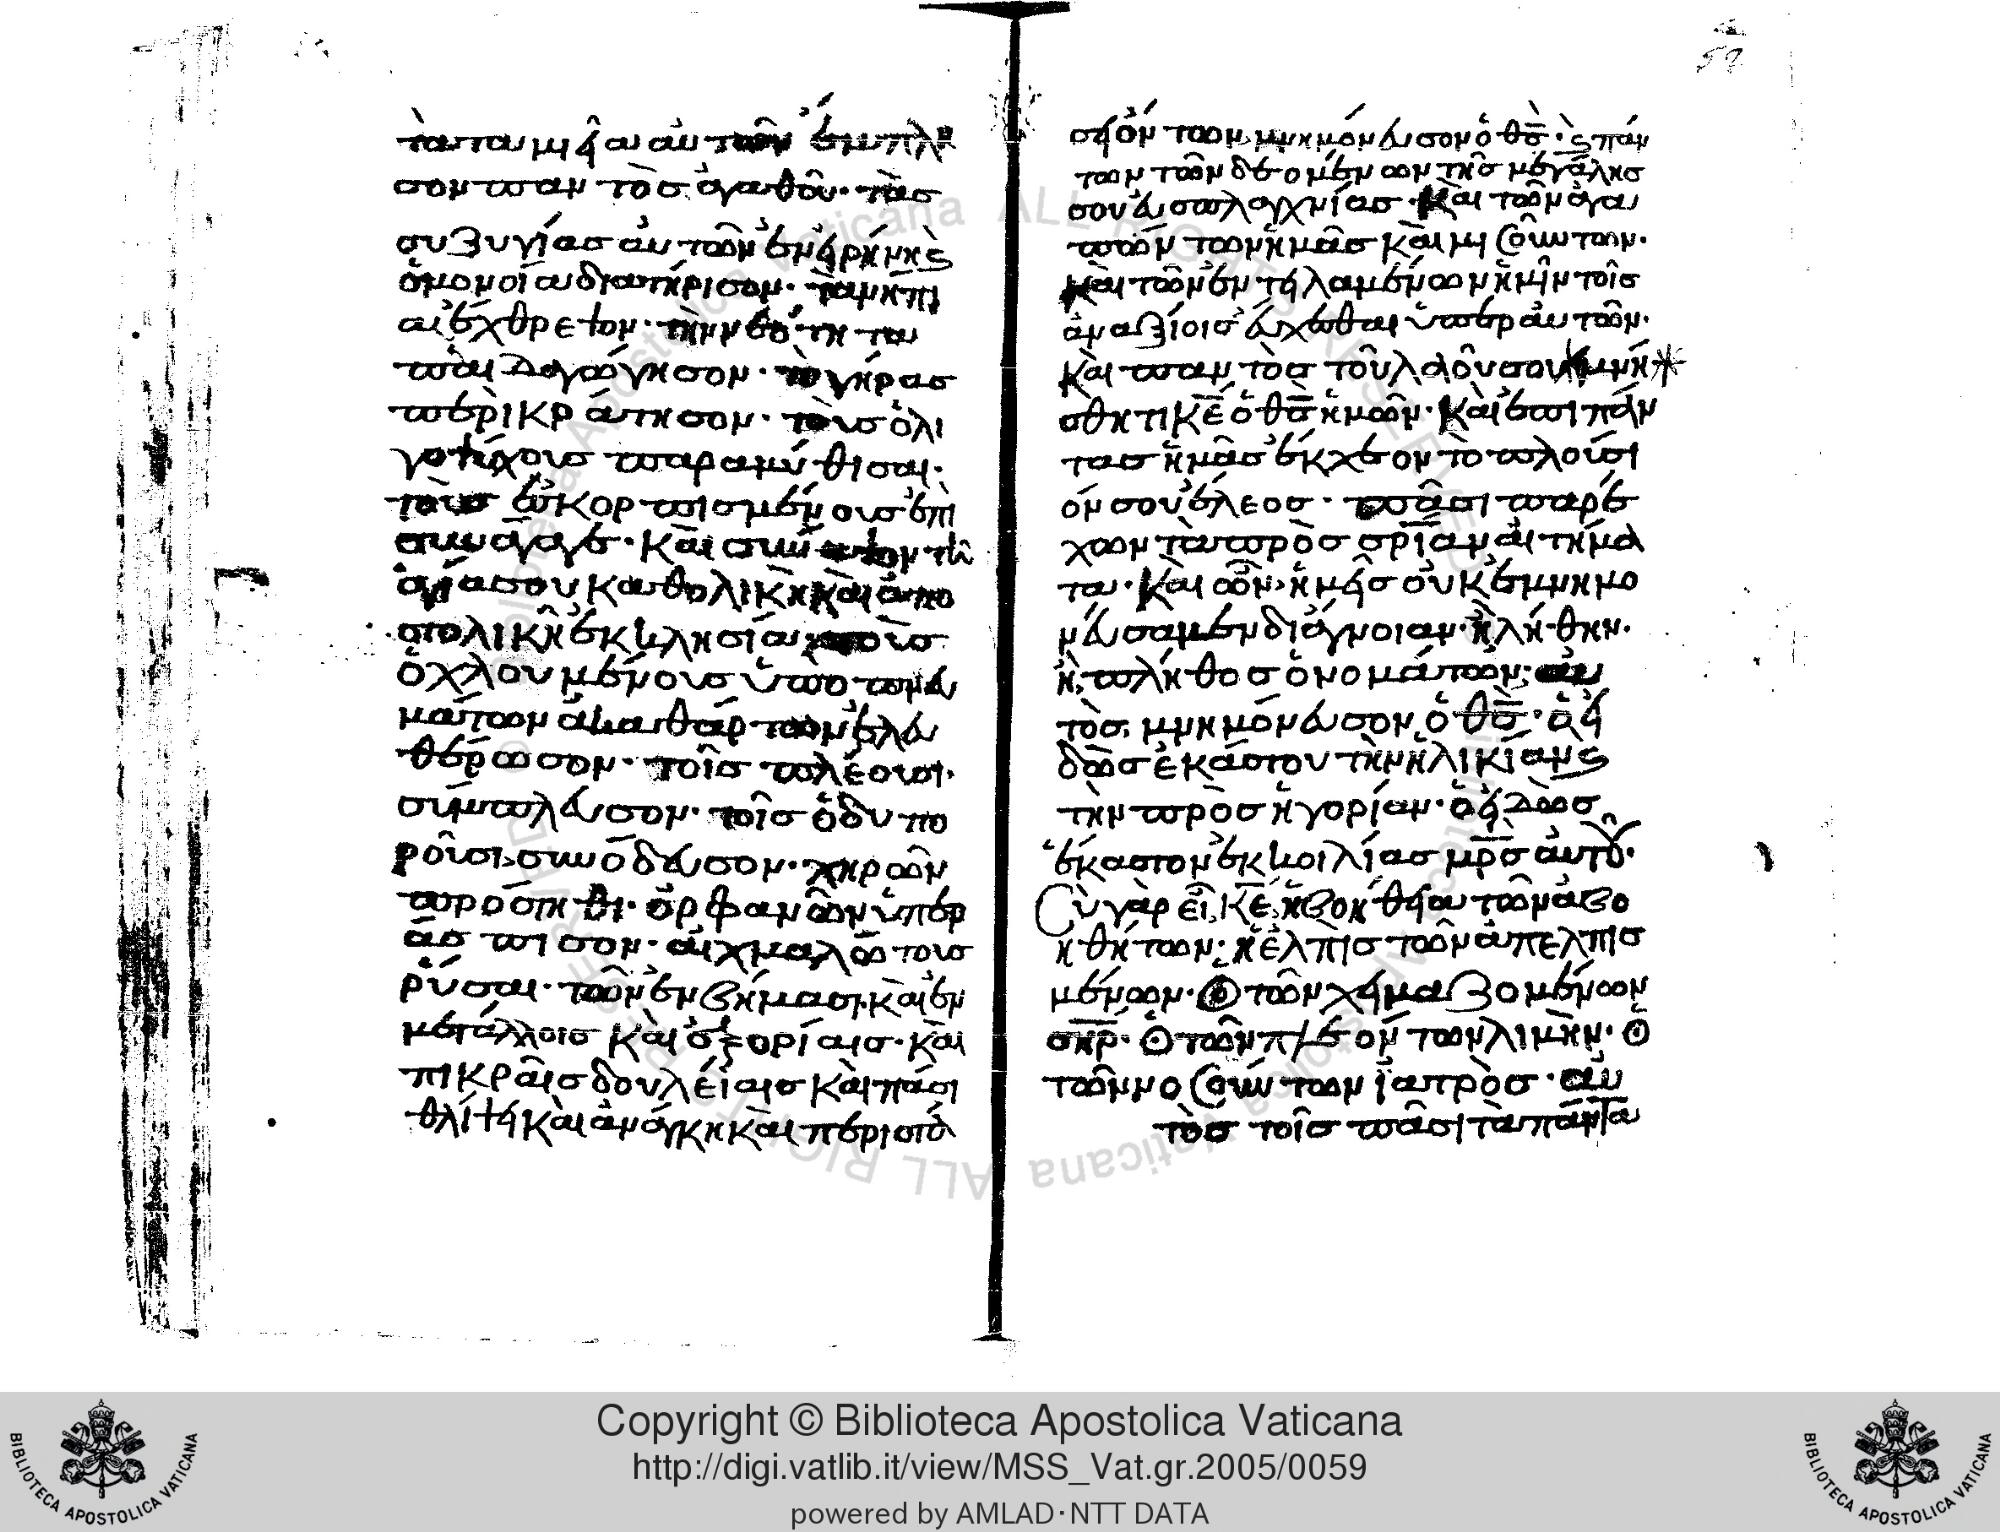 τὰ ταμιεῖα αὐτῶν ἔμπλη
σον παντὸς ἀγαθοῦ· τὰς
συζυγίας αὐτῶν ἐν εἰρήνη κὲ
ὁμονοία διατήρισον· τὰ νήπι
α ἔκθρεψον· τὴν νεότητα
παιδαγώγησον· τὸ γήρας
περικράτησον· τοὺς ὀλι
γοψύχους παραμύθισαι·
τοὺς ἐσκορπισμένους ἐπι
συνάγαγε· καὶ σύναψον τῆ
ἁγία σου καθολικῆ καὶ ἀπο
στολικῆ ἐκκλησία· τοὺς
ὀχλουμένους ὑπὸ πνευ
μάτων ἀκαθάρτων ἐλευ
θέρωσον· τοῖς πλέουσι·
σύμπλευσον· τοῖς ὁδυπο
ροῦσι, συνόδευσον· χηρῶν
πρόστηθι· ὀρφανῶν ὑπέρ
ασπισον· αἰχμαλώτους
ρύσαι· τῶν ἐν βήμασι, καὶ ἐν
μετάλλοις καὶ ἐξορίαις· καὶ
πικραῖς δουλείαις καὶ πάσι
θλίψει καὶ ἀνάγκη καὶ περιστά
σει ὄντων, μνημόνευσον ὁ θς· κὲ πάν
των τῶν δεομένων τῆς μεγάλης
σου εὐσπλαγχνίας· καὶ τῶν ἀγα
πώντων ἡμᾶς καὶ μισούντων·
καὶ τῶν ἐντειλαμένων ἡμῖν τοῖς
ἀναξίοις εὔχεσθαι ὑπὲρ αὐτῶν·
καὶ παντὸς τοῦ λαοῦ σου μνή
σθητι κε ὁ θς ἡμῶν· καὶ ἐπι πάν
τας ἡμᾶς ἔκχεον τὸ πλούσι
όν σου ἔλεος· πᾶσι παρέ
χων τὰ πρὸς σρίαν αἰτήμα
τα· καὶ ὧν, ἡμεῖς οὐκ ἐμνημο
νεύσαμεν δι ἄγνοιαν· ἢ λήθην·
ἢ, πλήθος ὀνομάτων· αὐ
τὸς, μνημόνευσον ὁ θς· ὁ εἰ
δὼς ἑκάστου τὴν ἡλικίαν κὲ
τὴν προσηγορίαν· ὁ εἰδὼς
ἕκαστον ἐκ κοιλίας μρς αὐτοῦ·
Σὺ γὰρ εἶ, κε, ἡ βοήθεια τῶν ἀβο
ηθήτων· ἡ ἐλπὶς τῶν ἀπελπισ
μένων· ὁ τῶν χειμαζομένων
σηρ· ὁ τῶν πλεόντων λιμήν· ὁ
τῶν νοσούντων ἰατρός· αὐ
τὸς τοῖς πᾶσι τὰ πάντα
Copyright © Biblioteca Apostolica Vaticana
http://digi.vatlib.it/view/MSS_Vat.gr.2005/0059
powered by AMLAD·NTT DATA